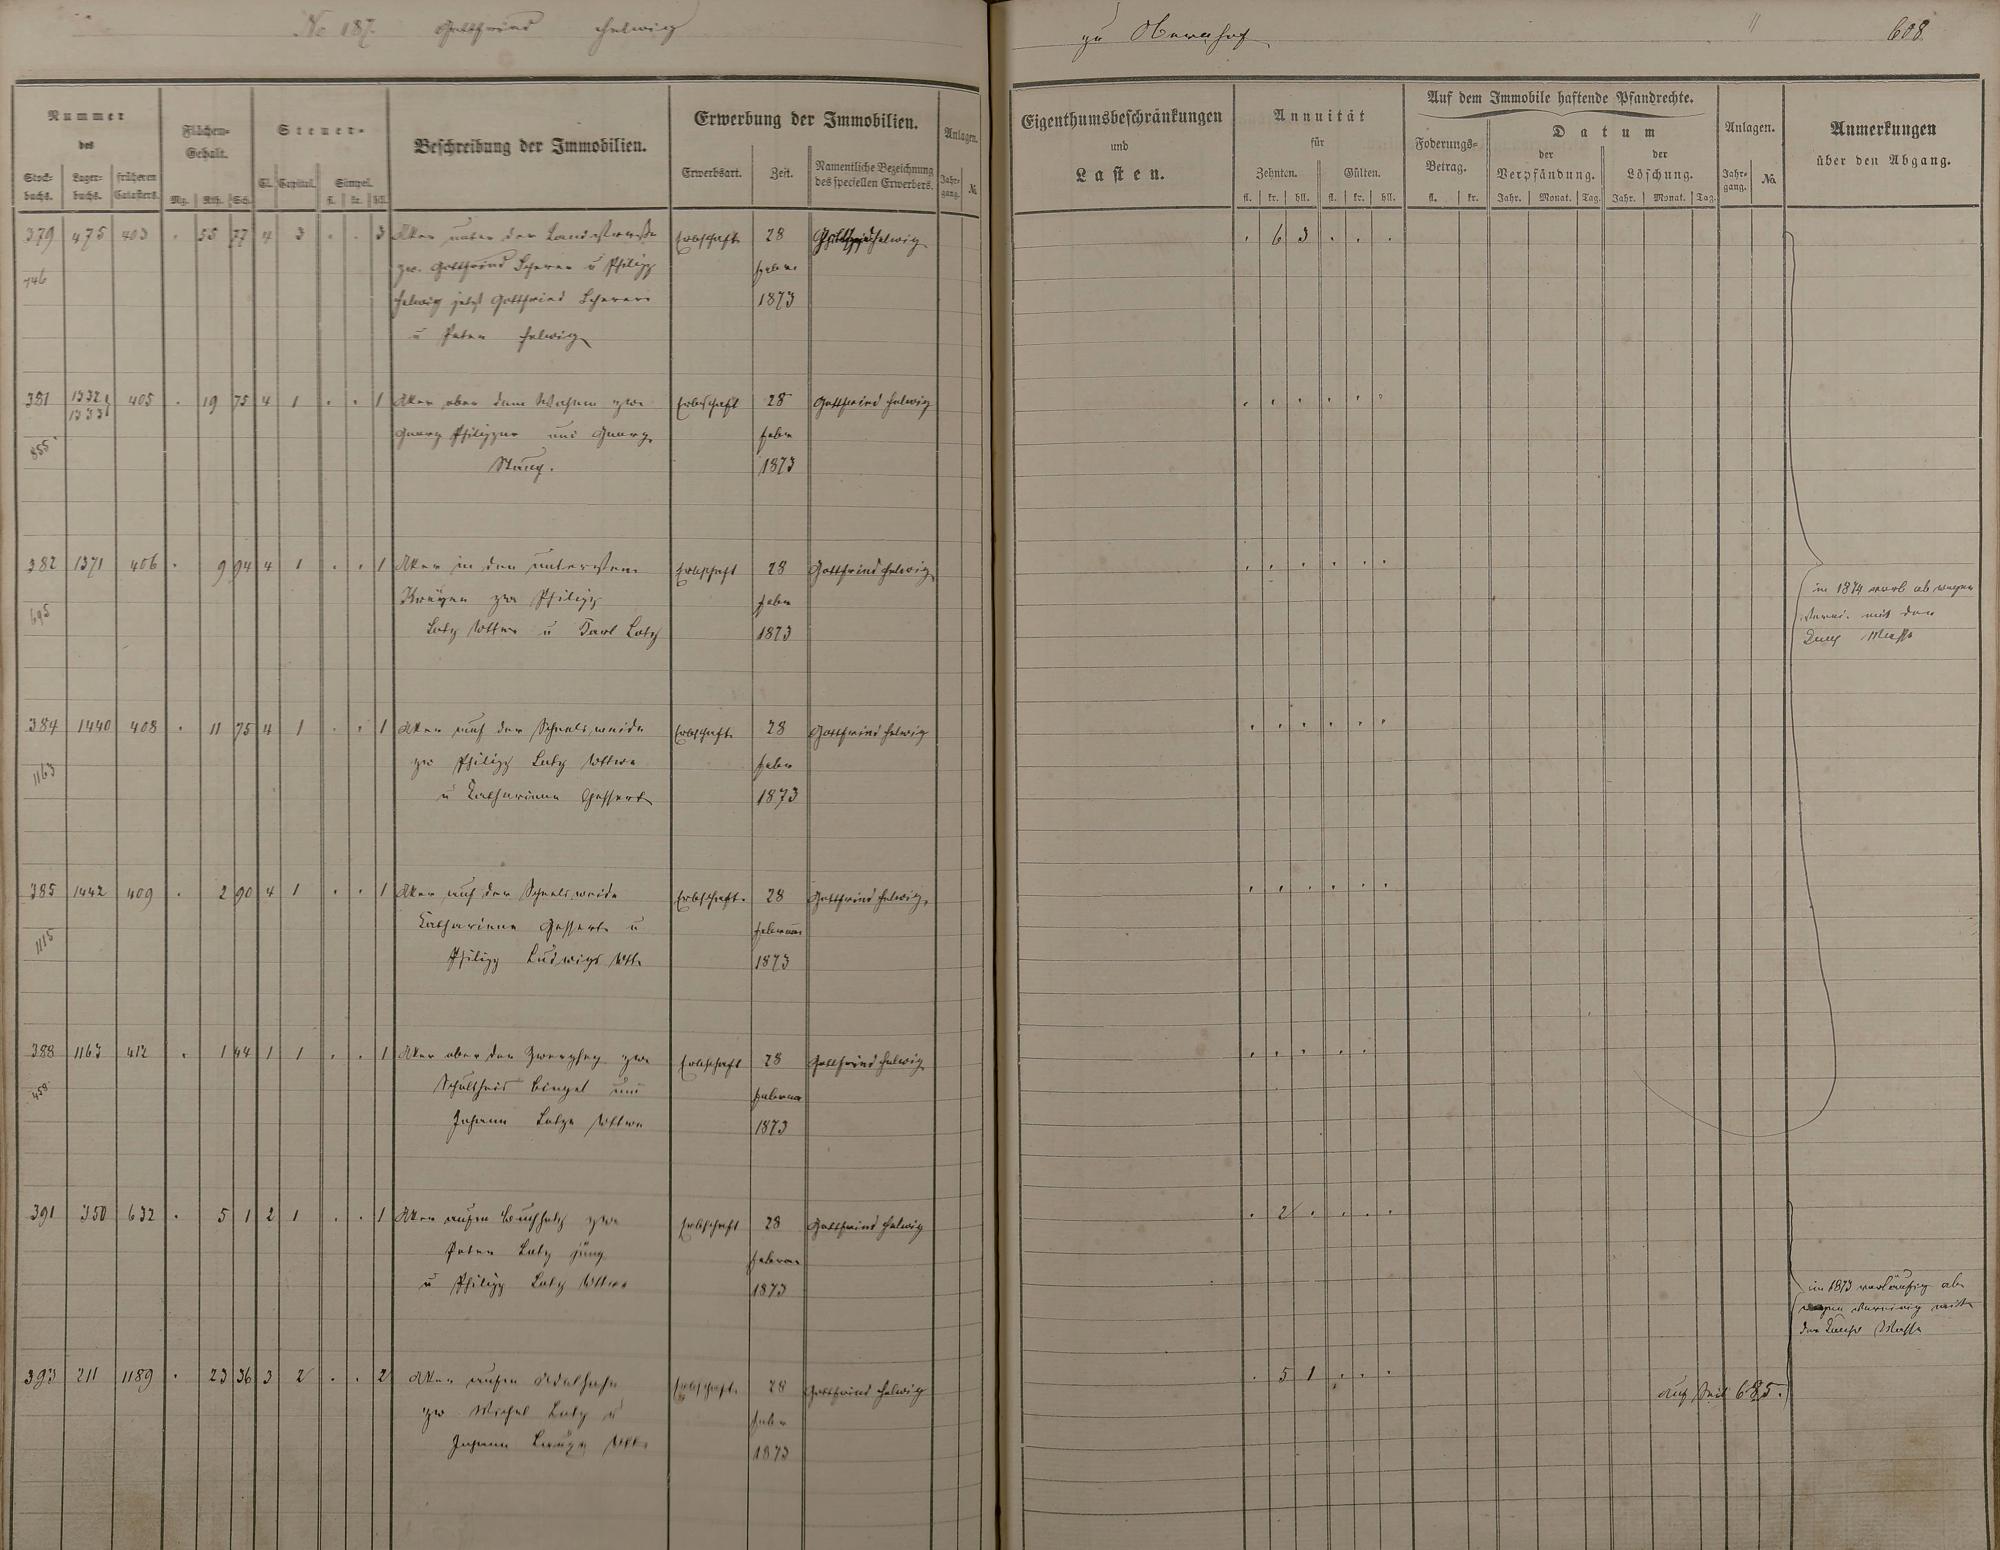 No 187. Gottfried Helwig
zu Obernhof
608
Nummer
des
Stock-
buchs.
Lager-
buchs.
früheren
Catasters.
Flächen-
Gehalt.
Mg. Rth. Sch.
Steuer-
Cl. Capital. Simpel.
fl. kr. hll.
Beschreibung der Immobilien.
Erwerbung der Immobilien.
Erwerbsart. Zeit.
Namentliche Bezeichnung
des speciellen Erwerbers.
Anlagen.
Jahr-
gang.
N.
Eigenthumsbeschränkungen
und
Lasten.
Annuität
für
Zehnten. Gülten.
fl. kr. hll. fl. kr. hll.
Auf dem Immobile haftende Pfandrechte.
Foderungs-
Betrag.
fl. kr.
Datum
der
Verpfändung.
der
Löschung.
Jahr. Monat. Tag. Jahr. Monat. Tag.
Anlagen.
Jahr-
gang.
No.
Anmerkungen
über den Abgang.
379 475 403 . 55 77 4 3 . . 3 Aker unter der Landestraße Erbschaft 28 Helwig . 6 3 . . .
746 zw. Gottfried Scherer u Philipp Febr
Helwig jetzt Gottfried Scherer 1873
u Peter Helwig
381 1332 405 . 19 75 4 1 . . 1 Aker ober dem zw. Erbschaft 28 Gottfried Helwig . . . . . .
1333
855 Georg Philipps und Georg Febr
1873
382 1371 406 . 9 94 4 1 . . 1 Aker in den untersten Erbschaft 28 Gottfried Helwig . . . . . .
695 zw Philipp Febr
Lotz Wttwe u Carl Lotz 1873
in 1874 ab wegen
mit der
Masse
384 1440 408 . 11 75 4 1 . . 1 Aker auf der Erbschaft 28 Gottfried Helwig . . . . . .
1163 zw Philipp Lotz Wttwe Febr
u Catharina Gessert 1873
385 1442 409 . 2 90 4 1 . . 1 Aker auf der Erbschaft 28 Gottfried Helwig . . . . . .
1115 Catharina Gessert u Februar
Philipp Ludwigs Wtt. 1873
388 1163 412 . 1 44 1 1 . . 1 Aker ober der zw. Erbschaft 28 Gottfried Helwig . . . . .
458 Schultheis Bingel und Februar
Johann Wttwe 1873
391 350 632 . 5 1 2 1 . . 1 Aker aufm Buchholz zw. Erbschaft 28 Gottfried Helwig . 2 . . . .
Peter Lotz jung Februar
u Philipp Lotz Wttwe 1873
in 1873 vorläufig ab
mit
der Masse
393 211 1189 . 23 36 3 2 . . 2 Aker aufm Erbschaft 28 Gottfried Helwig . 5 1 . . .
zw Michel Lotz u Febr
Johann Wtt. 1873
auf Seit 685.